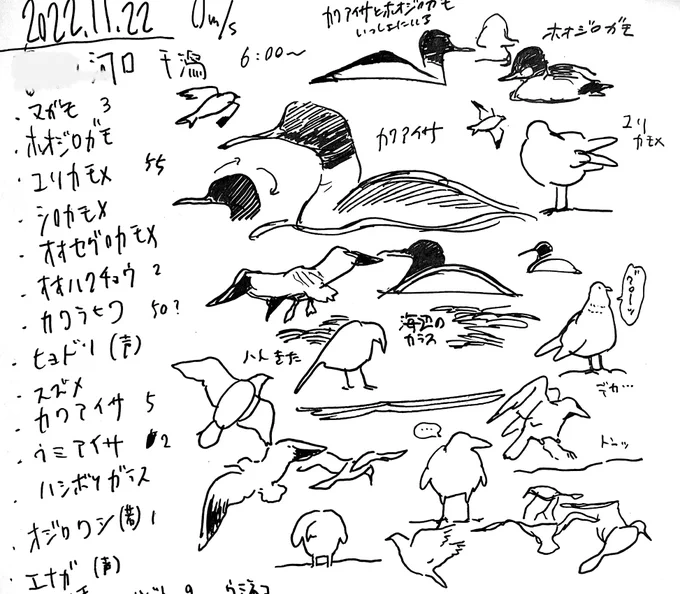 2022.11.22 0m/s
河口 干潟 6:00〜
・マガモ 3
・ホオジロガモ
・ユリカモメ 55
・シロカモメ
・オオセグロカモメ
・オオハクチョウ 2
・カワラヒワ 50?
・ヒヨドリ(声)
・スズメ
・カワアイサ 5
・ウミアイサ 2
・ハシボソガラス
・オジロワシ 1
・エナガ(声)
カワアイサとホオジロガモ
いっしょにいる
ホオジロガモ
カワアイサ
ユリ
カモメ
海辺の
カラス
ハトきた
デカ…
…
トンッ